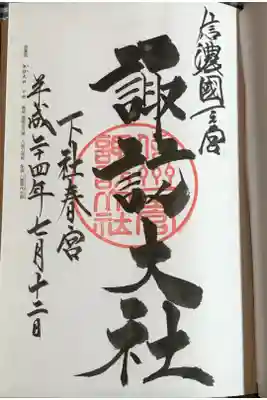 信濃國一宮
諏訪大社
下社春宮
平成二十四年七月十二日